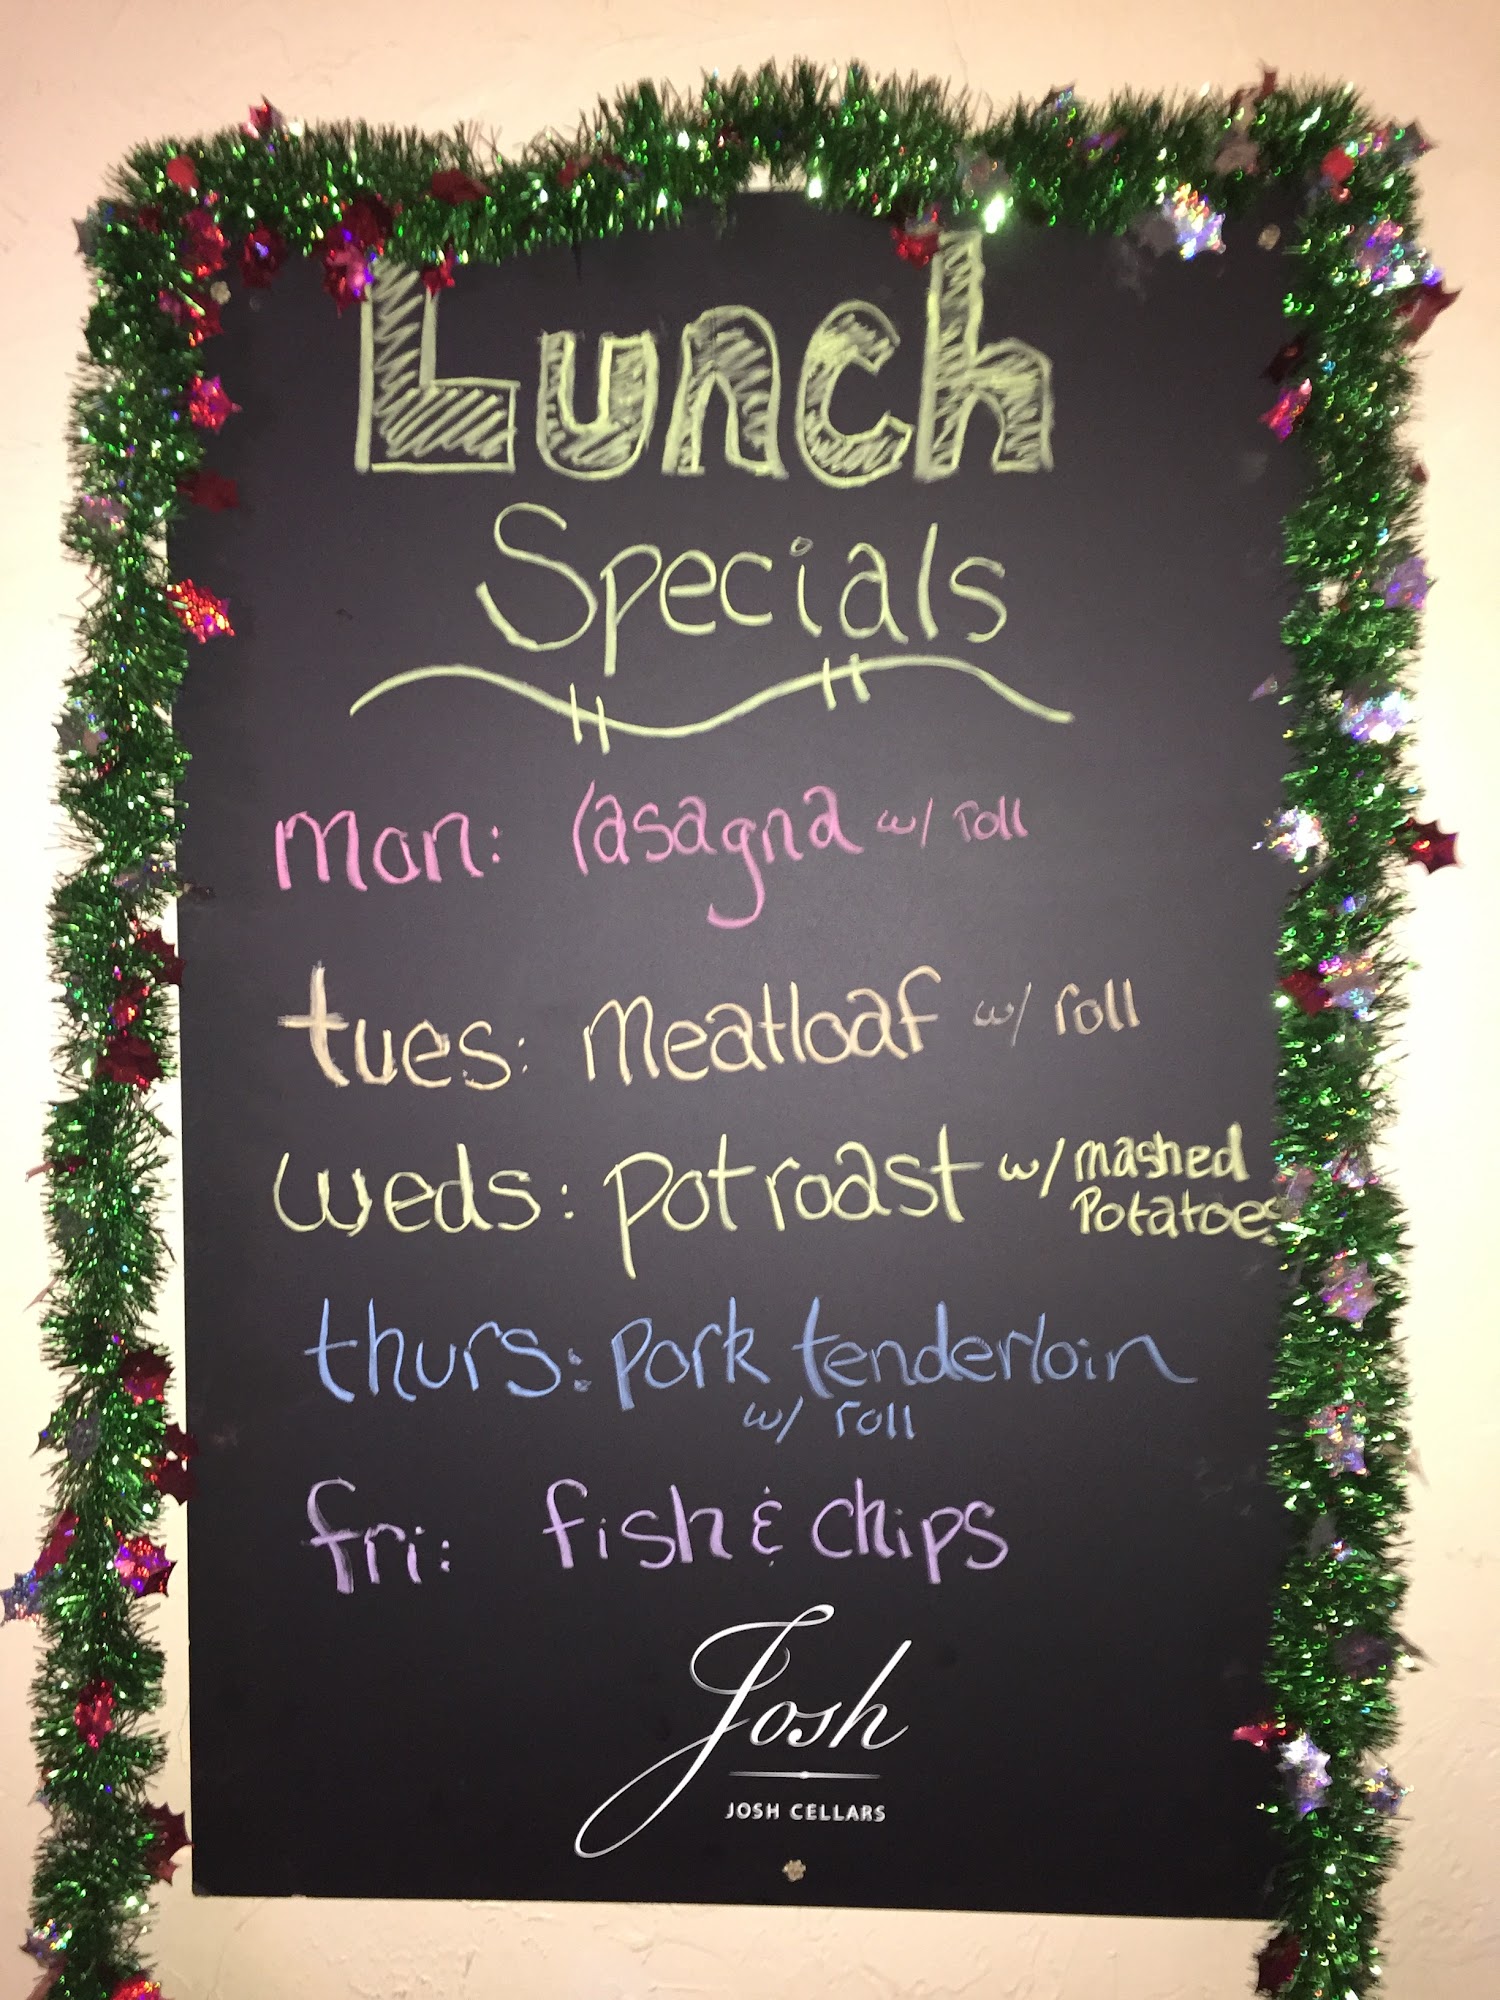 Lunch
Specials
mon: lasagna w/ roll
tues: meatloaf w/ roll
weds: pot roast w/ mashed
potatoes
thurs: pork tenderloin
w/ roll
fri: fish & chips
Josh
JOSH CELLARS